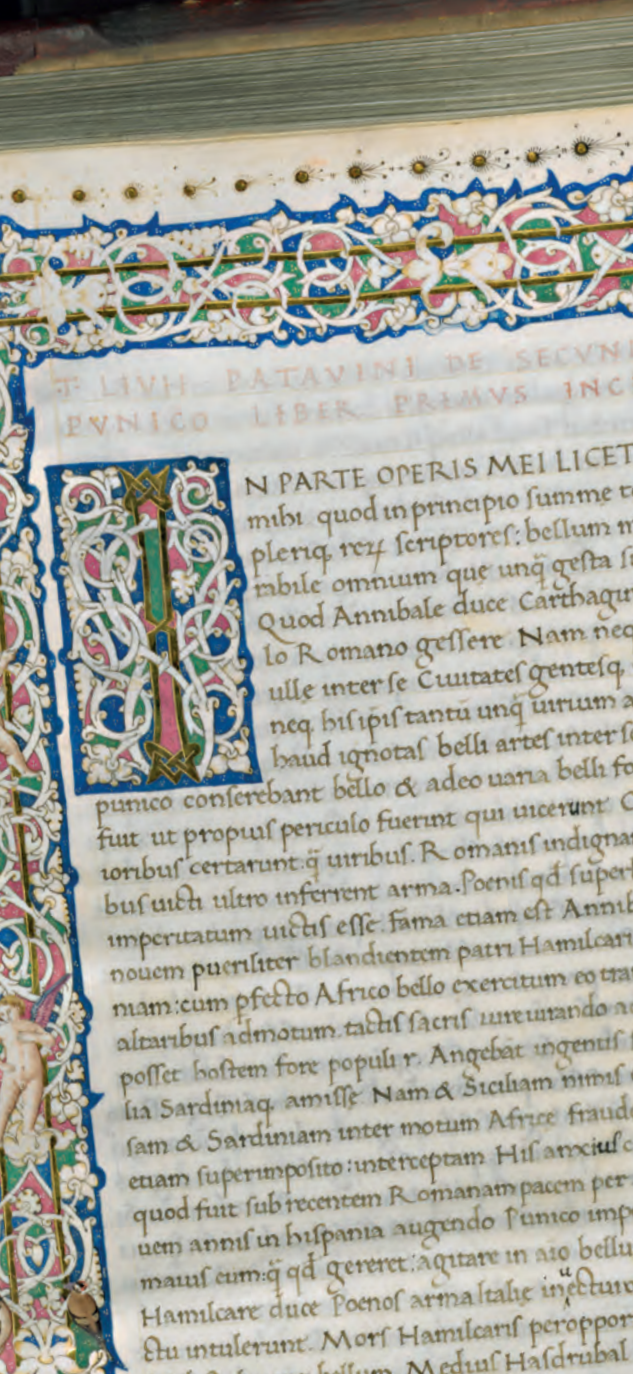 T LIVII PATAVINI DE SECVN
PVNICO LIBER PRIMVS INC
IN PARTE OPERIS MEI LICET
mihi quod in principio summe
pleriq; reꝝ scriptores: bellum
rabile omnium que unq̃ gesta
Quod Annibale duce Carthagin
lo Romano gessere. Nam nec
ullę inter se Ciuitates gentesq
neq his ipis tantū unq̃ uirium a
haud ignotas belli artes inter se
punico conserebant bello & adeo uaria belli fo
fuit ut propius periculo fuerint qui uicerunt
ioribus certarunt. q̃ uiribus. Romanis indignan
bus uicti ultro inferrent arma. Poenis qđ super
imperitatum uictis esse. Fama etiam est Annib
nouem pueriliter blandientem patri Hamilcari
niam: cum pfecto Africo bello exercitum eo tra
altaribus admotum. tactis sacris iureiurando
posset hostem fore populi r. Angebat ingentis
lia Sardiniaq. amisse Nam & Siciliam nimis
sam & Sardiniam inter motum Africe fraude
etiam superimposito: interceptam His anxius
quod fuit sub recentem Romanam pacem per
uem annis in hispania augendo Punico impe
maius eum: q̃ qđ gereret: agitare in aio bellu
Hamilcare duce Poenos arma Italie inecturu
ctu intulerunt. Mors Hamilcaris peroppor
bellum. Medius Hasdrubal